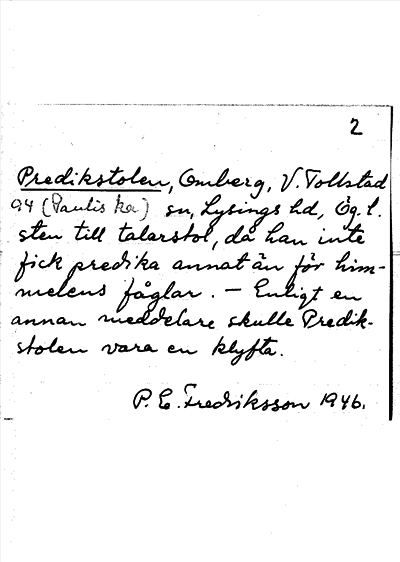 2
Predikstolen, Omberg, V. Tollstad
94 (Paulis ka) sn, Lysings hd, Ög. l.
sten till talarstol, då han inte
fick predika annat än för him-
melens fåglar. — Enligt en
annan meddelare skulle Predik-
stolen vara en klyfta.
P. E. Fredriksson 1946.